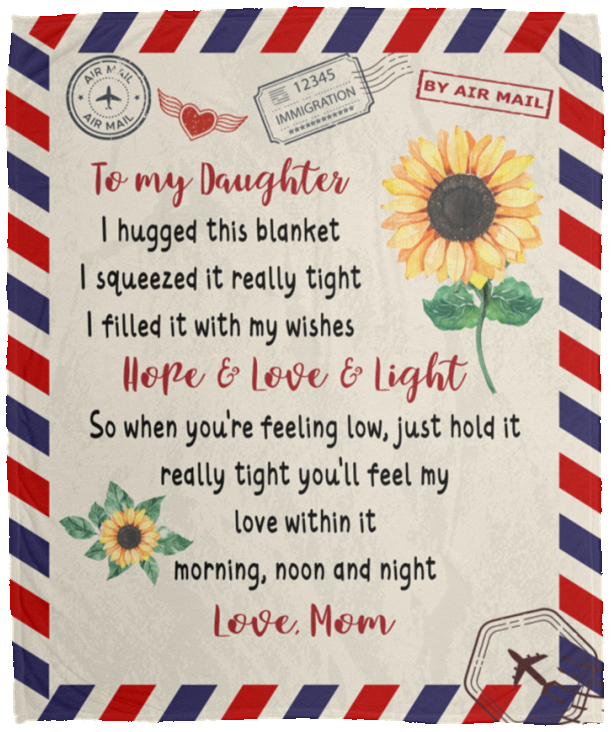 AIR MAIL
AIR MAIL
12345
IMMIGRATION
BY AIR MAIL
To my Daughter
I hugged this blanket
I squeezed it really tight
I filled it with my wishes
Hope & Love & Light
So when you're feeling low, just hold it
really tight you'll feel my
love within it
morning, noon and night
Love, Mom